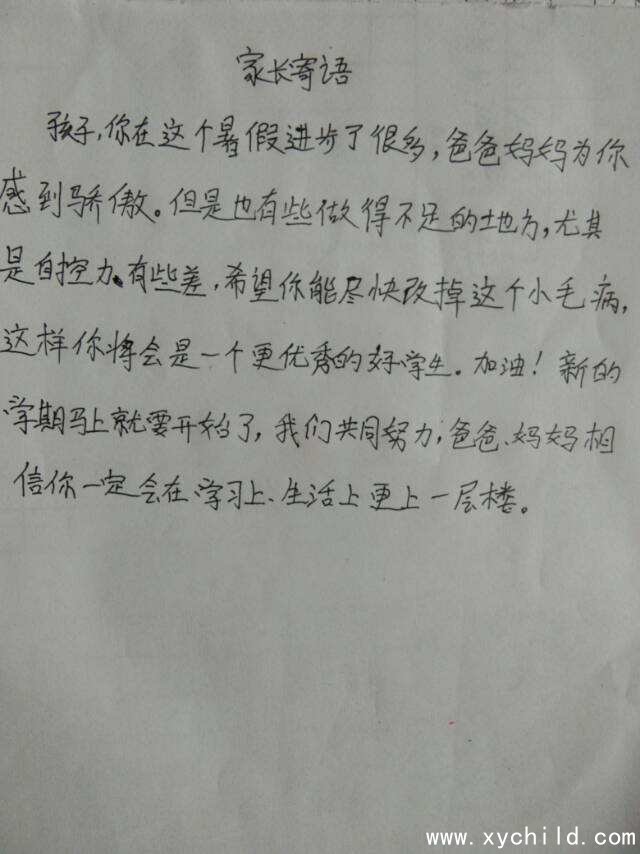 家长寄语
孩子,你在这个暑假进步了很多,爸爸妈妈为你
感到骄傲。但是也有些做得不足的地方,尤其
是自控力、有些差,希望你能尽快改掉这个小毛病,
这样你将会是一个更优秀的好学生。加油!新的
学期马上就要开始了,我们共同努力,爸爸、妈妈相
信你一定会在学习上、生活上更上一层楼。
www.xychild.com